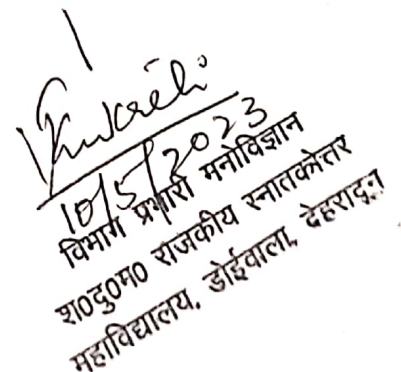 10/5/2023
विभाग प्रभारी मनोविज्ञान
श०दु०म० राजकीय स्नातकोत्तर
महाविद्यालय, डोईवाला, देहरादून